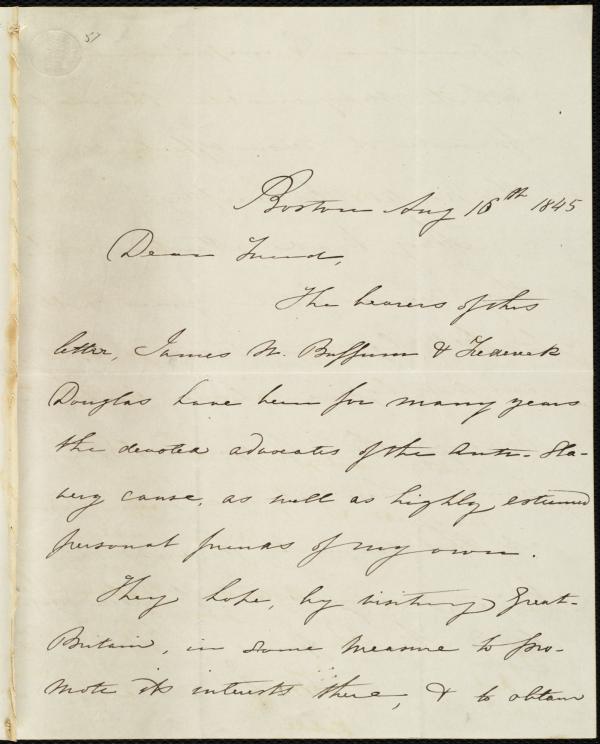 51
Boston Aug 16th 1845
Dear Friend,
The bearers of this
letter, James N. Buffum & Frederick
Douglas have been for many years
the devoted advocates of the Anti-Sla-
very cause, as well as highly esteemed
personal friends of my own.
They hope, by visiting Great-
Britain, in some measure to pro-
mote its interests there, & to obtain